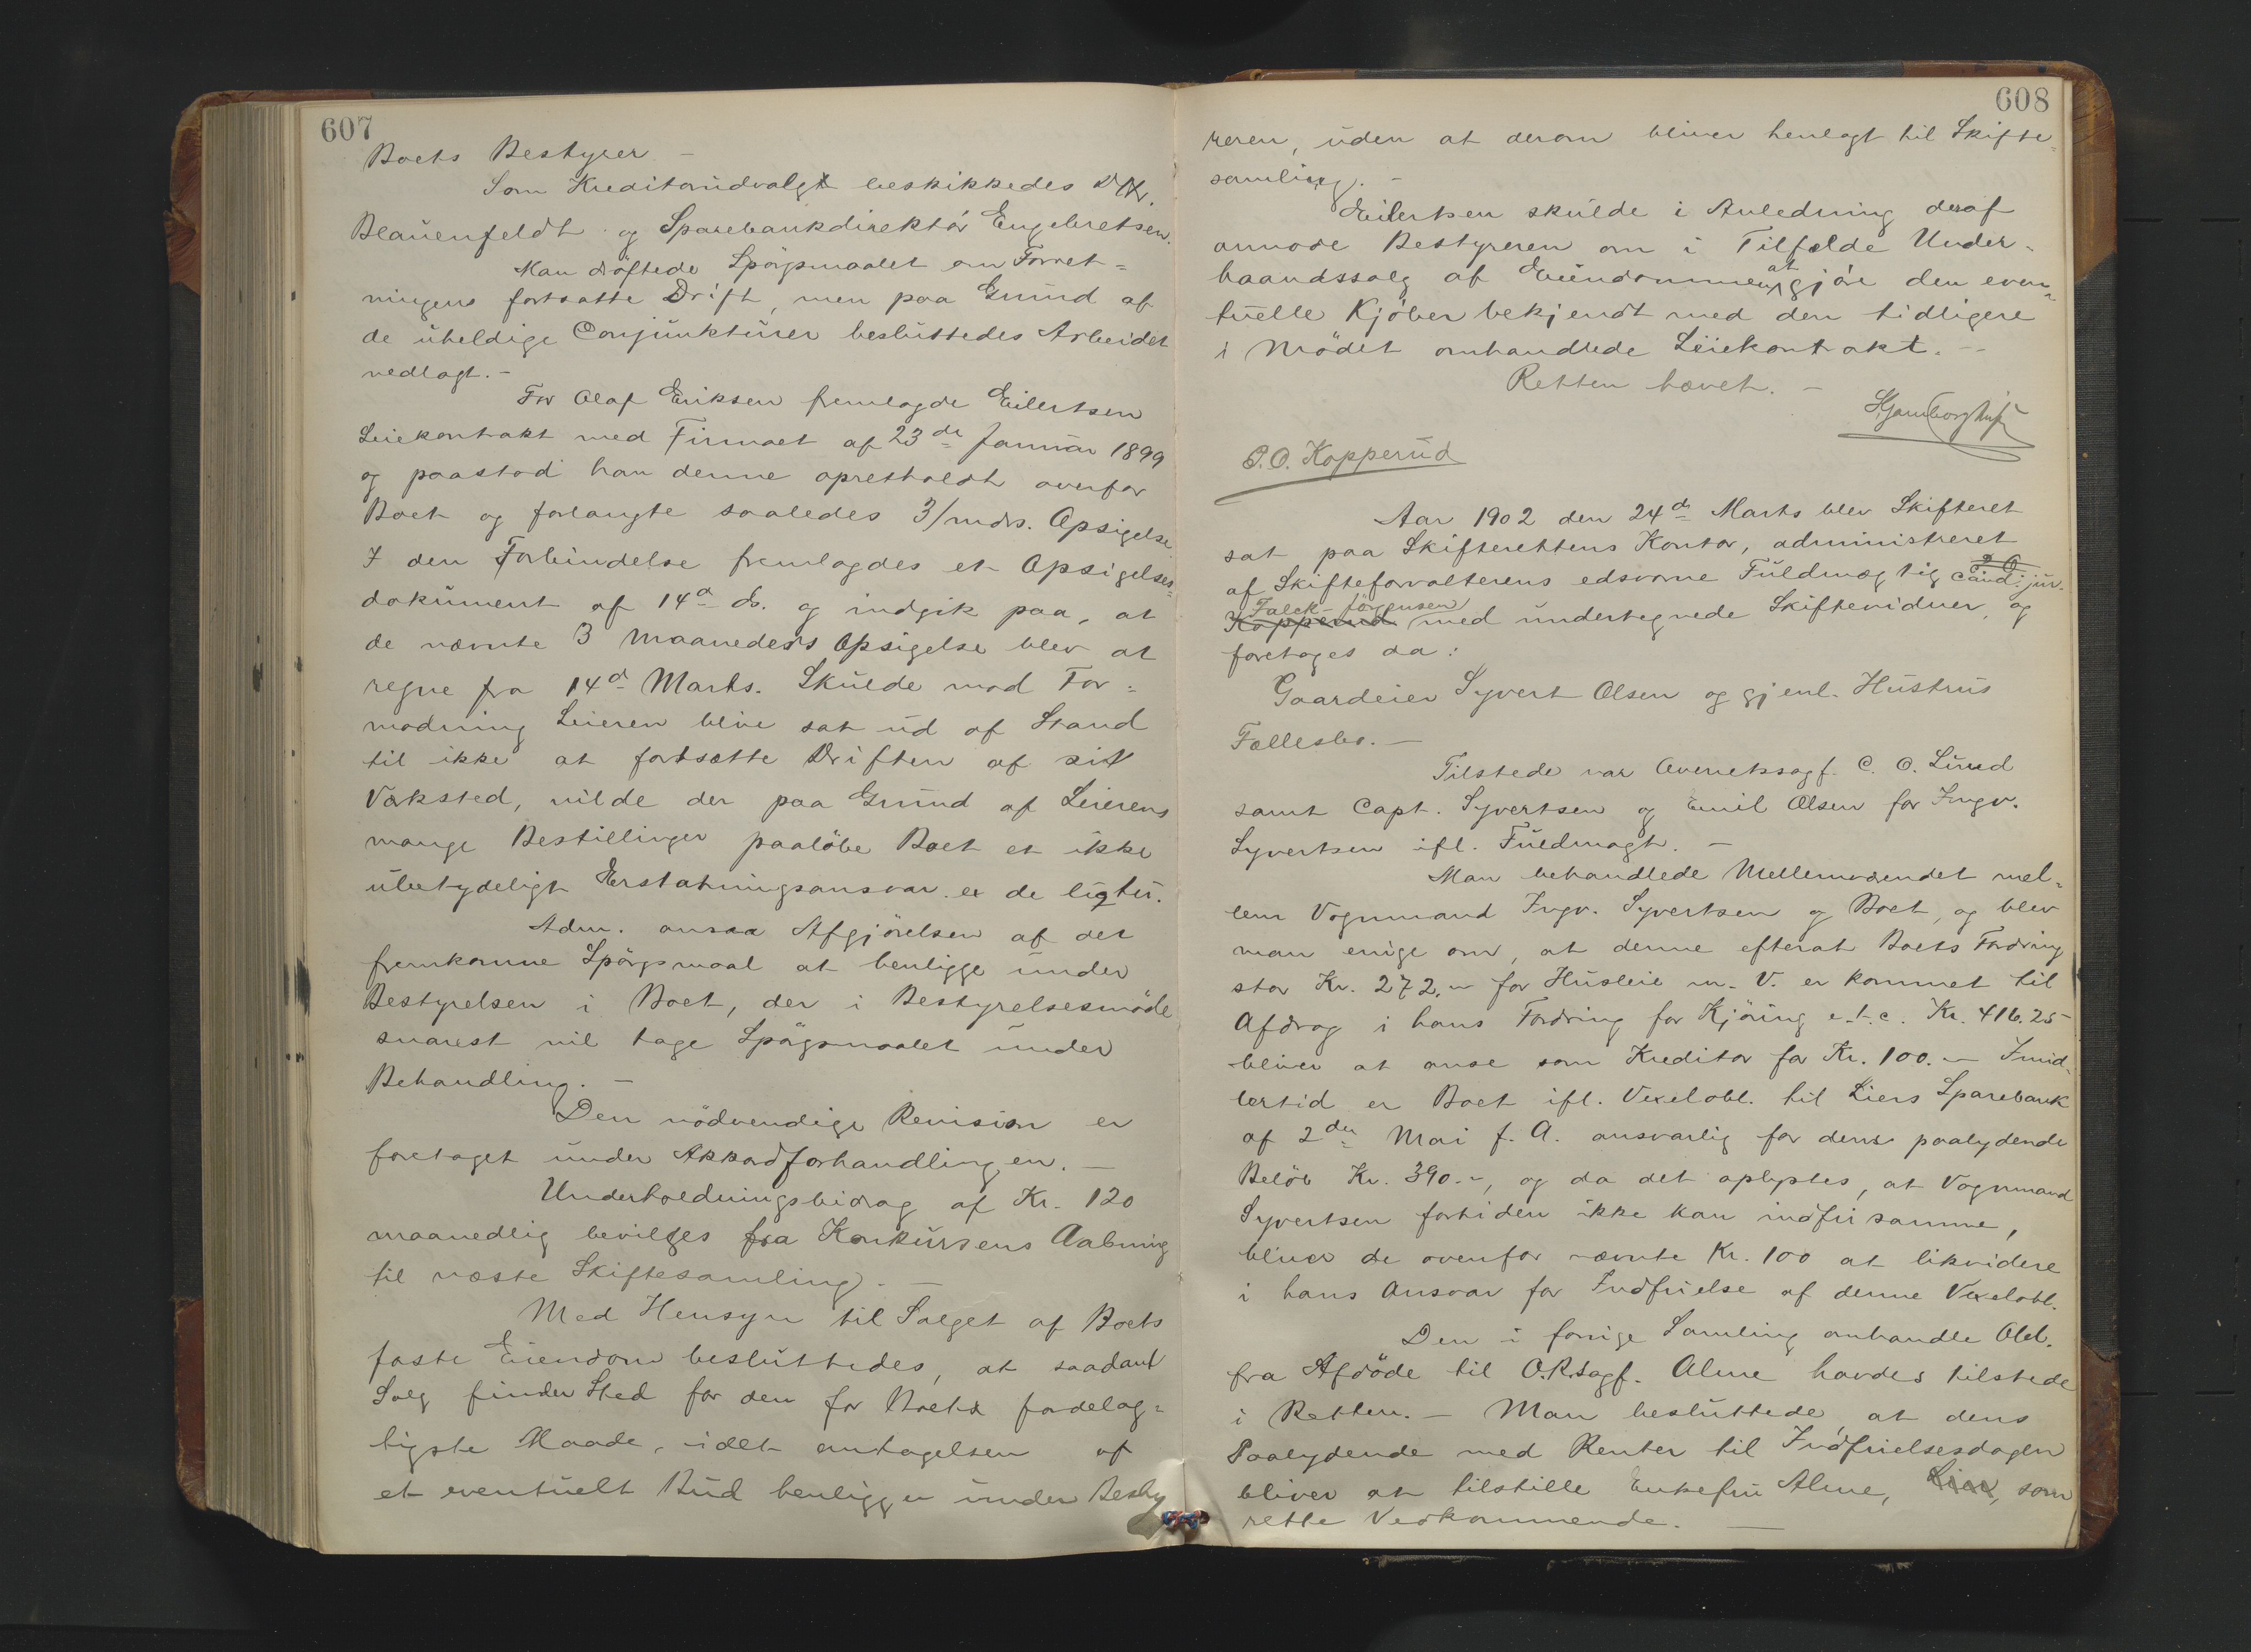 607
Boets Bestyrer –
Som Kreditorudvalg beskikkedes D'Hr.
Blauenfeldt og Sparebankdirektör Engebretsen.
Man dröftede Spörgsmaalet om Forret=
ningens fortsatte Drift, men paa Grund af
de uheldige Conjunkturer besluttedes Arbeidet
nedlagt. –
For Olaf Eriksen fremlagde Eilertsen
Leiekontrakt med Firmaet af 23de Januar 1899
og paastod han denne opretholdt overfor
Boet og forlangte saaledes 3/mdrs. Opsigelse
I den Forbindelse fremlagdes et Opsigelses=
dokument af 14d ds. og indgik paa, at
de nævnte 3 Maaneders Opsigelse blev at
regne fra 14d Marts. Skulde mod For=
modning Leieren blive sat ud af Stand
til ikke at fortsætte Driften af sit
Værksted, vilde der paa Grund af Leierens
mange Bestillinger paalöbe Boet et ikke
ubetydeligt Erstatningsansvar ex de ligtu.
Adm. ansaa Afgjörelsen af det
fremkomne Spörgsmaal at henligge under
Bestyrelsen i Boet, der i Bestyrelsesmöde
snarest vil tage Spörgsmaalet under
Behandling. –
Den nödvendige Revision er
foretaget under Akkordforhandlingen. –
Underholdningsbidrag af Kr. 120
maanedlig bevilges fra Konkursens Aabning
til næste Skiftesamling. –
Med Hensyn til Salget af Boets
faste Eiendom besluttedes, at saadant
Salg finder Sted for den for Boet fordelag=
tigste Maade, idet antagelsen af
et eventuelt Bud henligger under Besty
608
reren, uden at derom bliver henlagt til Skifte=
samling. –
Eilertsen skulde i Anledning deraf
anmode Bestyreren om i Tilfælde Under=
haandssalg af Eiendommen at gjöre den even=
tuelle Kjöber bekjendt med den tidligere
i Mödet omhandlede Leiekontrakt. –
Retten hævet. –
P.O. Kopperud
Aar 1902 den 24de Marts blev Skifteret
sat paa Skifterettens Kontor, administreret
af Skifteforvalterens edsvorne Fuldmægtig cand. jur.
Kopperud Falck-Jörgensen med undertegnede Skiftevidner, og
foretoges da:
Gaardeier Syvert Olsen og gjenl. Hustrus
Fællesbo. –
Tilstede var Overretssagf. C. O. Lund
samt Capt. Syvertsen og Emil Olsen for Ingv.
Syvertsen ifl. Fuldmagt. –
Man behandlede Mellemværendet mel=
lem Vognmand Ingv. Syvertsen og Boet, og blev
man enige om, at denne efterat Boets Fordring
stor Kr. 272,– for Husleie m. V. er kommet til
Afdrag i hans Fordring for Kjöring e.t.c. Kr. 416.25
bliver at anse som Kreditor for Kr. 100.– Imid=
lertid er Boet ifl. Vexelobl. til Liers Sparebank
af 2den Mai f. A. ansvarlig for dens paalydende
Belöb Kr. 390.–, og da det oplystes, at Vognmand
Syvertsen fortiden ikke kan indfri samme,
bliver de ovenfor nævnte Kr. 100 at likvidere
i hans Ansvar for Indfrielse af denne Vexelobl.
Den i forrige Samling omhandle Obl.
fra Afdöde til O.R.sagf. Alme havdes tilstede
i Retten. – Man besluttede at dens
Paalydende med Renter til Indfrielsesdagen
bliver at tilstille Enkefru Alme, Lier, som
rette Vedkommende. –